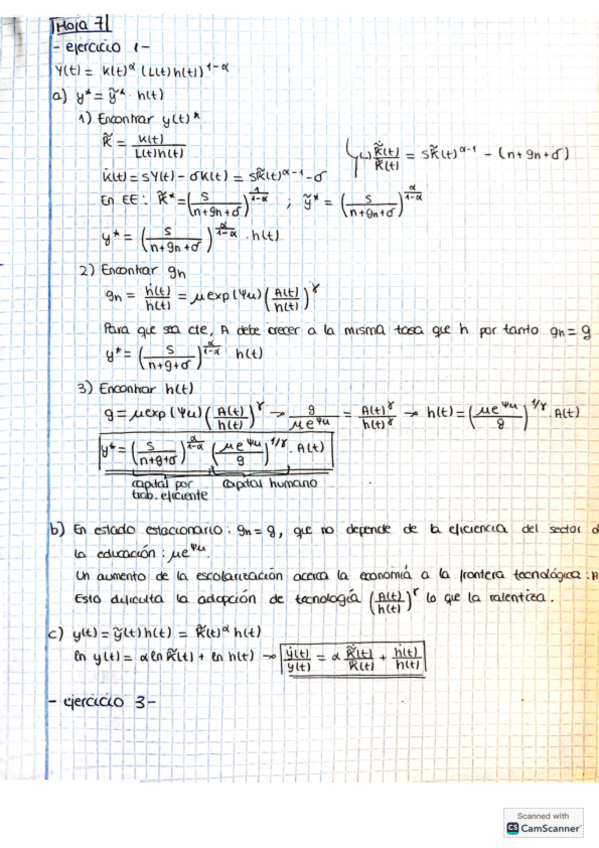 Hoja 7
- ejercicio 1 -
Y(t) = K(t)^α (L(t)h(t))^1-α
a) y* = ỹ* · h(t)
1) Encontrar y(t)*
k̃ = K(t) / L(t)h(t)
↳ k̃̇(t)/k̃(t) = sk̃(t)^α-1 - (n+gn+σ)
K̇(t) = sY(t) - σK(t) = sk̃(t)^α-1 - σ
En EE: k̃* = (s/(n+gn+σ))^1/1-α ; ỹ* = (s/(n+gn+σ))^α/1-α
y* = (s/(n+gn+σ))^α/1-α · h(t)
2) Encontrar gn
gn = ḣ(t)/h(t) = μ exp(ψu) (A(t)/h(t))^γ
Para que sea cte, A debe crecer a la misma tasa que h por tanto gn = g
y* = (s/(n+g+σ))^α/1-α h(t)
3) Encontrar h(t)
g = μ exp(ψu) (A(t)/h(t))^γ → g/μe^ψu = A(t)^γ/h(t)^γ → h(t) = (μe^ψu/g)^1/γ · A(t)
y* = (s/(n+g+σ))^α/1-α (μe^ψu/g)^1/γ · A(t)
capital por trab. eficiente
capital humano
b) En estado estacionario: gn = g, que no depende de la eficiencia del sector d
la educación: μe^ψu.
Un aumento de la escolarización acerca la economía a la frontera tecnológica: A
Esto dificulta la adopción de tecnología (A(t)/h(t))^γ lo que la ralentiza.
c) y(t) = ỹ(t)h(t) = k̃(t)^α h(t)
ln y(t) = α ln k̃(t) + ln h(t) → ẏ(t)/y(t) = α k̃̇(t)/k̃(t) + ḣ(t)/h(t)
- ejercicio 3 -
Scanned with
CS CamScanner